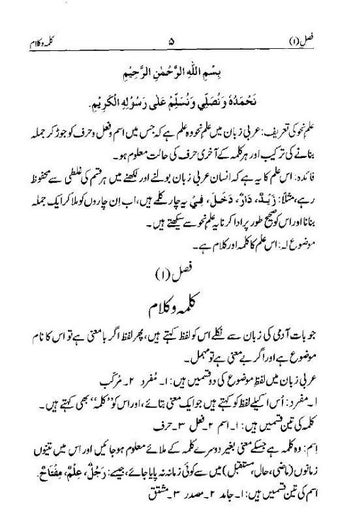 فصل (۱) ۵ کلمہ و کلام
بِسْمِ اللهِ الرَّحْمٰنِ الرَّحِيْمِ
نَحْمَدُهٗ وَنُصَلِّيْ وَنُسَلِّمُ عَلٰى رَسُوْلِهِ الْكَرِيْمِ.
علم نحو کی تعریف: عربی زبان میں علم نحو وہ علم ہے کہ جس میں اسم و فعل و حرف کو جوڑ کر جملہ
بنانے کی ترکیب اور ہر کلمہ کے آخری حرف کی حالت معلوم ہو۔
فائدہ: اس علم کا یہ ہے کہ انسان عربی زبان بولنے اور لکھنے میں ہر قسم کی غلطی سے محفوظ
رہے، مثلاً: زَيْدٌ، دَارٌ، دَخَلَ، فِيْ یہ چار کلمے ہیں، اب اِن چاروں کو ملا کر ایک جملہ
بنانا اور اس کو صحیح طور پر ادا کرنا یہ علم نحو سے سیکھتے ہیں۔
موضوع: اس علم کا کلمہ اور کلام ہے۔
فصل (۱)
کلمہ و کلام
جو بات آدمی کی زبان سے نکلے اس کو لفظ کہتے ہیں، پھر لفظ اگر بامعنی ہے تو اس کا نام
موضوع ہے اور اگر بے معنی ہے تو مہمل۔
عربی زبان میں لفظِ موضوع کی دو قسمیں ہیں: ۱۔ مُفرد ۲۔ مرکّب
۱۔ مُفرد: اُس اکیلے لفظ کو کہتے ہیں جو ایک معنی بتائے، اور اس کو ”کلمہ“ بھی کہتے ہیں۔
کلمہ کی تین قسمیں ہیں: ۱۔ اسم ۲۔ فعل ۳۔ حرف
اِسم: وہ کلمہ ہے جسکے معنی بغیر دوسرے کلمہ کے ملائے معلوم ہو جائیں اور اس میں تینوں
زمانوں (ماضی، حال، مستقبل) میں سے کوئی زمانہ نہ پایا جائے، جیسے: رَجُلٌ، عِلْمٌ، مِفْتَاحٌ.
اسم کی تین قسمیں ہیں: ۱۔ جامد ۲۔ مصدر ۳۔ مشتق